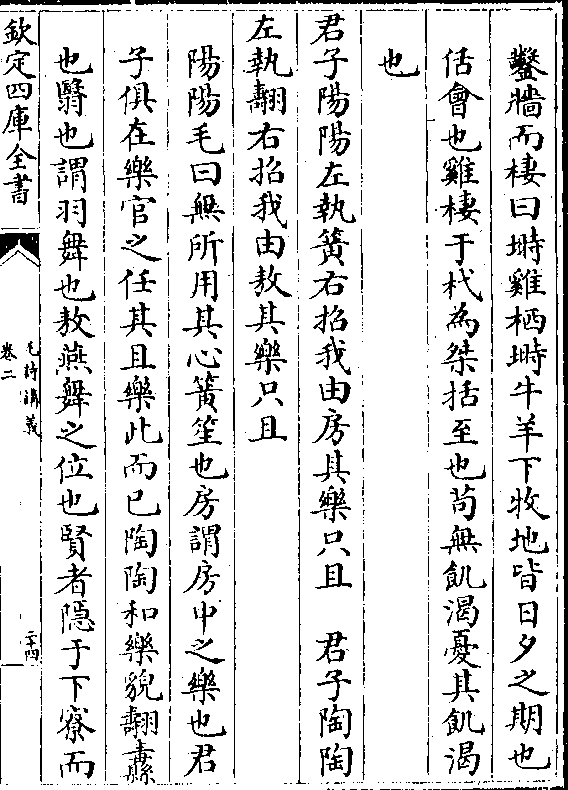 鑿牆而棲曰塒雞栖塒牛羊下牧地皆日夕之期也
佸會也雞棲于杙為桀括至也茍無飢渴憂其飢渴
也
君子陽陽左執簧右招我由房其樂只且　君子陶陶
左執翿右招我由敖其樂只且
陽陽毛曰無所用其心簧笙也房謂房中之樂也君
子俱在樂官之任其且樂此而已陶陶和樂貌翿纛
也翳也謂羽舞也敖燕舞之位也賢者隱于下寮而
欽定四庫全書
毛詩講義
卷二
二十四